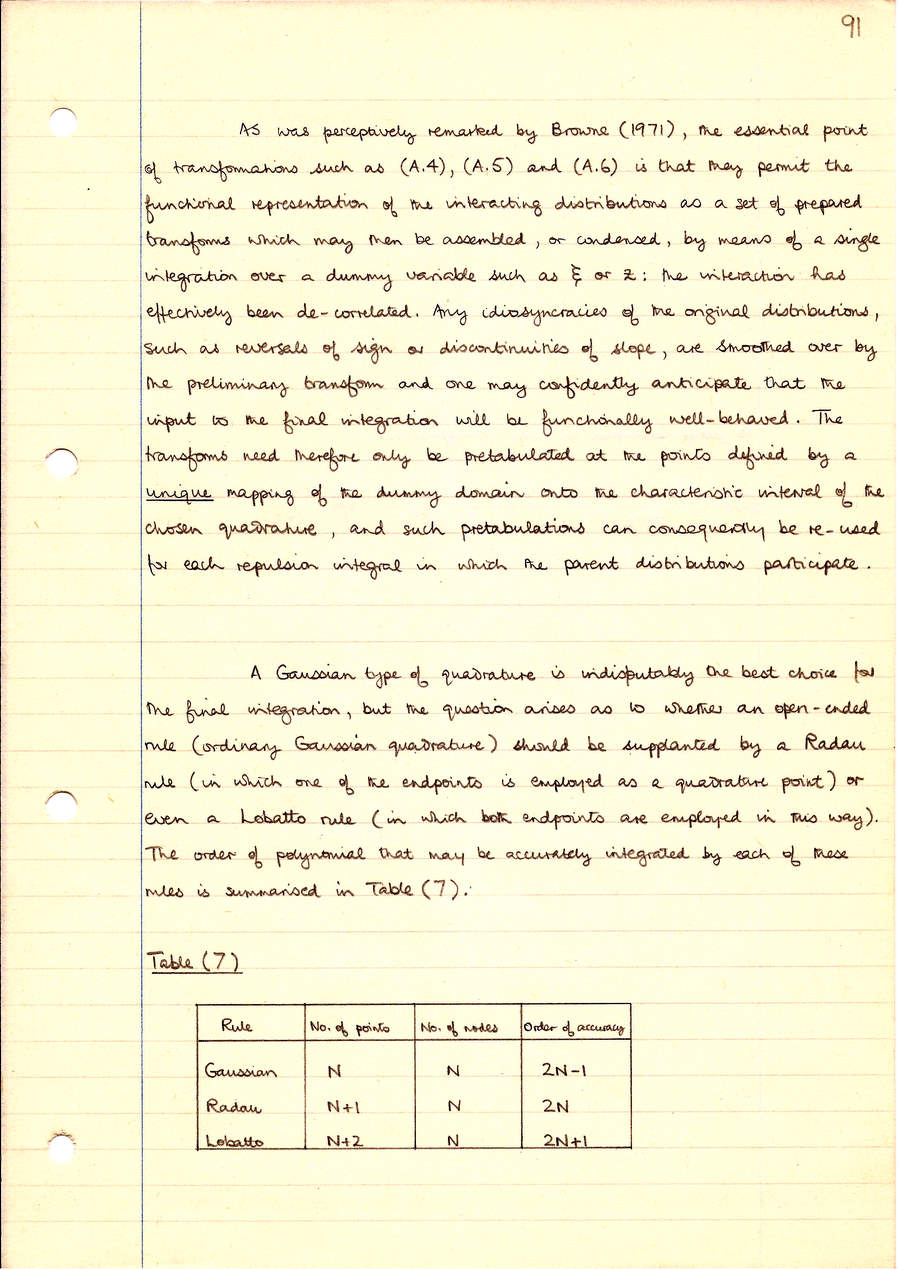 91
As was perceptively remarked by Browne (1971), the essential point
of transformations such as (A.4), (A.5) and (A.6) is that they permit the
functional representation of the interacting distributions as a set of prepared
transforms which may then be assembled, or condensed, by means of a single
integration over a dummy variable such as ξ or z: the interaction has
effectively been de-correlated. Any idiosyncracies of the original distributions,
such as reversals of sign or discontinuities of slope, are smoothed over by
the preliminary transform and one may confidently anticipate that the
input to the final integration will be functionally well-behaved. The
transforms need therefore only be pretabulated at the points defined by a
unique mapping of the dummy domain onto the characteristic interval of the
chosen quadrature, and such pretabulations can consequently be re-used
for each repulsion integral in which the parent distributions participate.
A Gaussian type of quadrature is indisputably the best choice for
the final integration, but the question arises as to whether an open-ended
rule (ordinary Gaussian quadrature) should be supplanted by a Radau
rule (in which one of the endpoints is employed as a quadrature point) or
even a Lobatto rule (in which both endpoints are employed in this way).
The order of polynomial that may be accurately integrated by each of these
rules is summarised in Table (7).
Table (7)
Rule No. of points No. of nodes Order of accuracy
Gaussian N N 2N-1
Radau N+1 N 2N
Lobatto N+2 N 2N+1